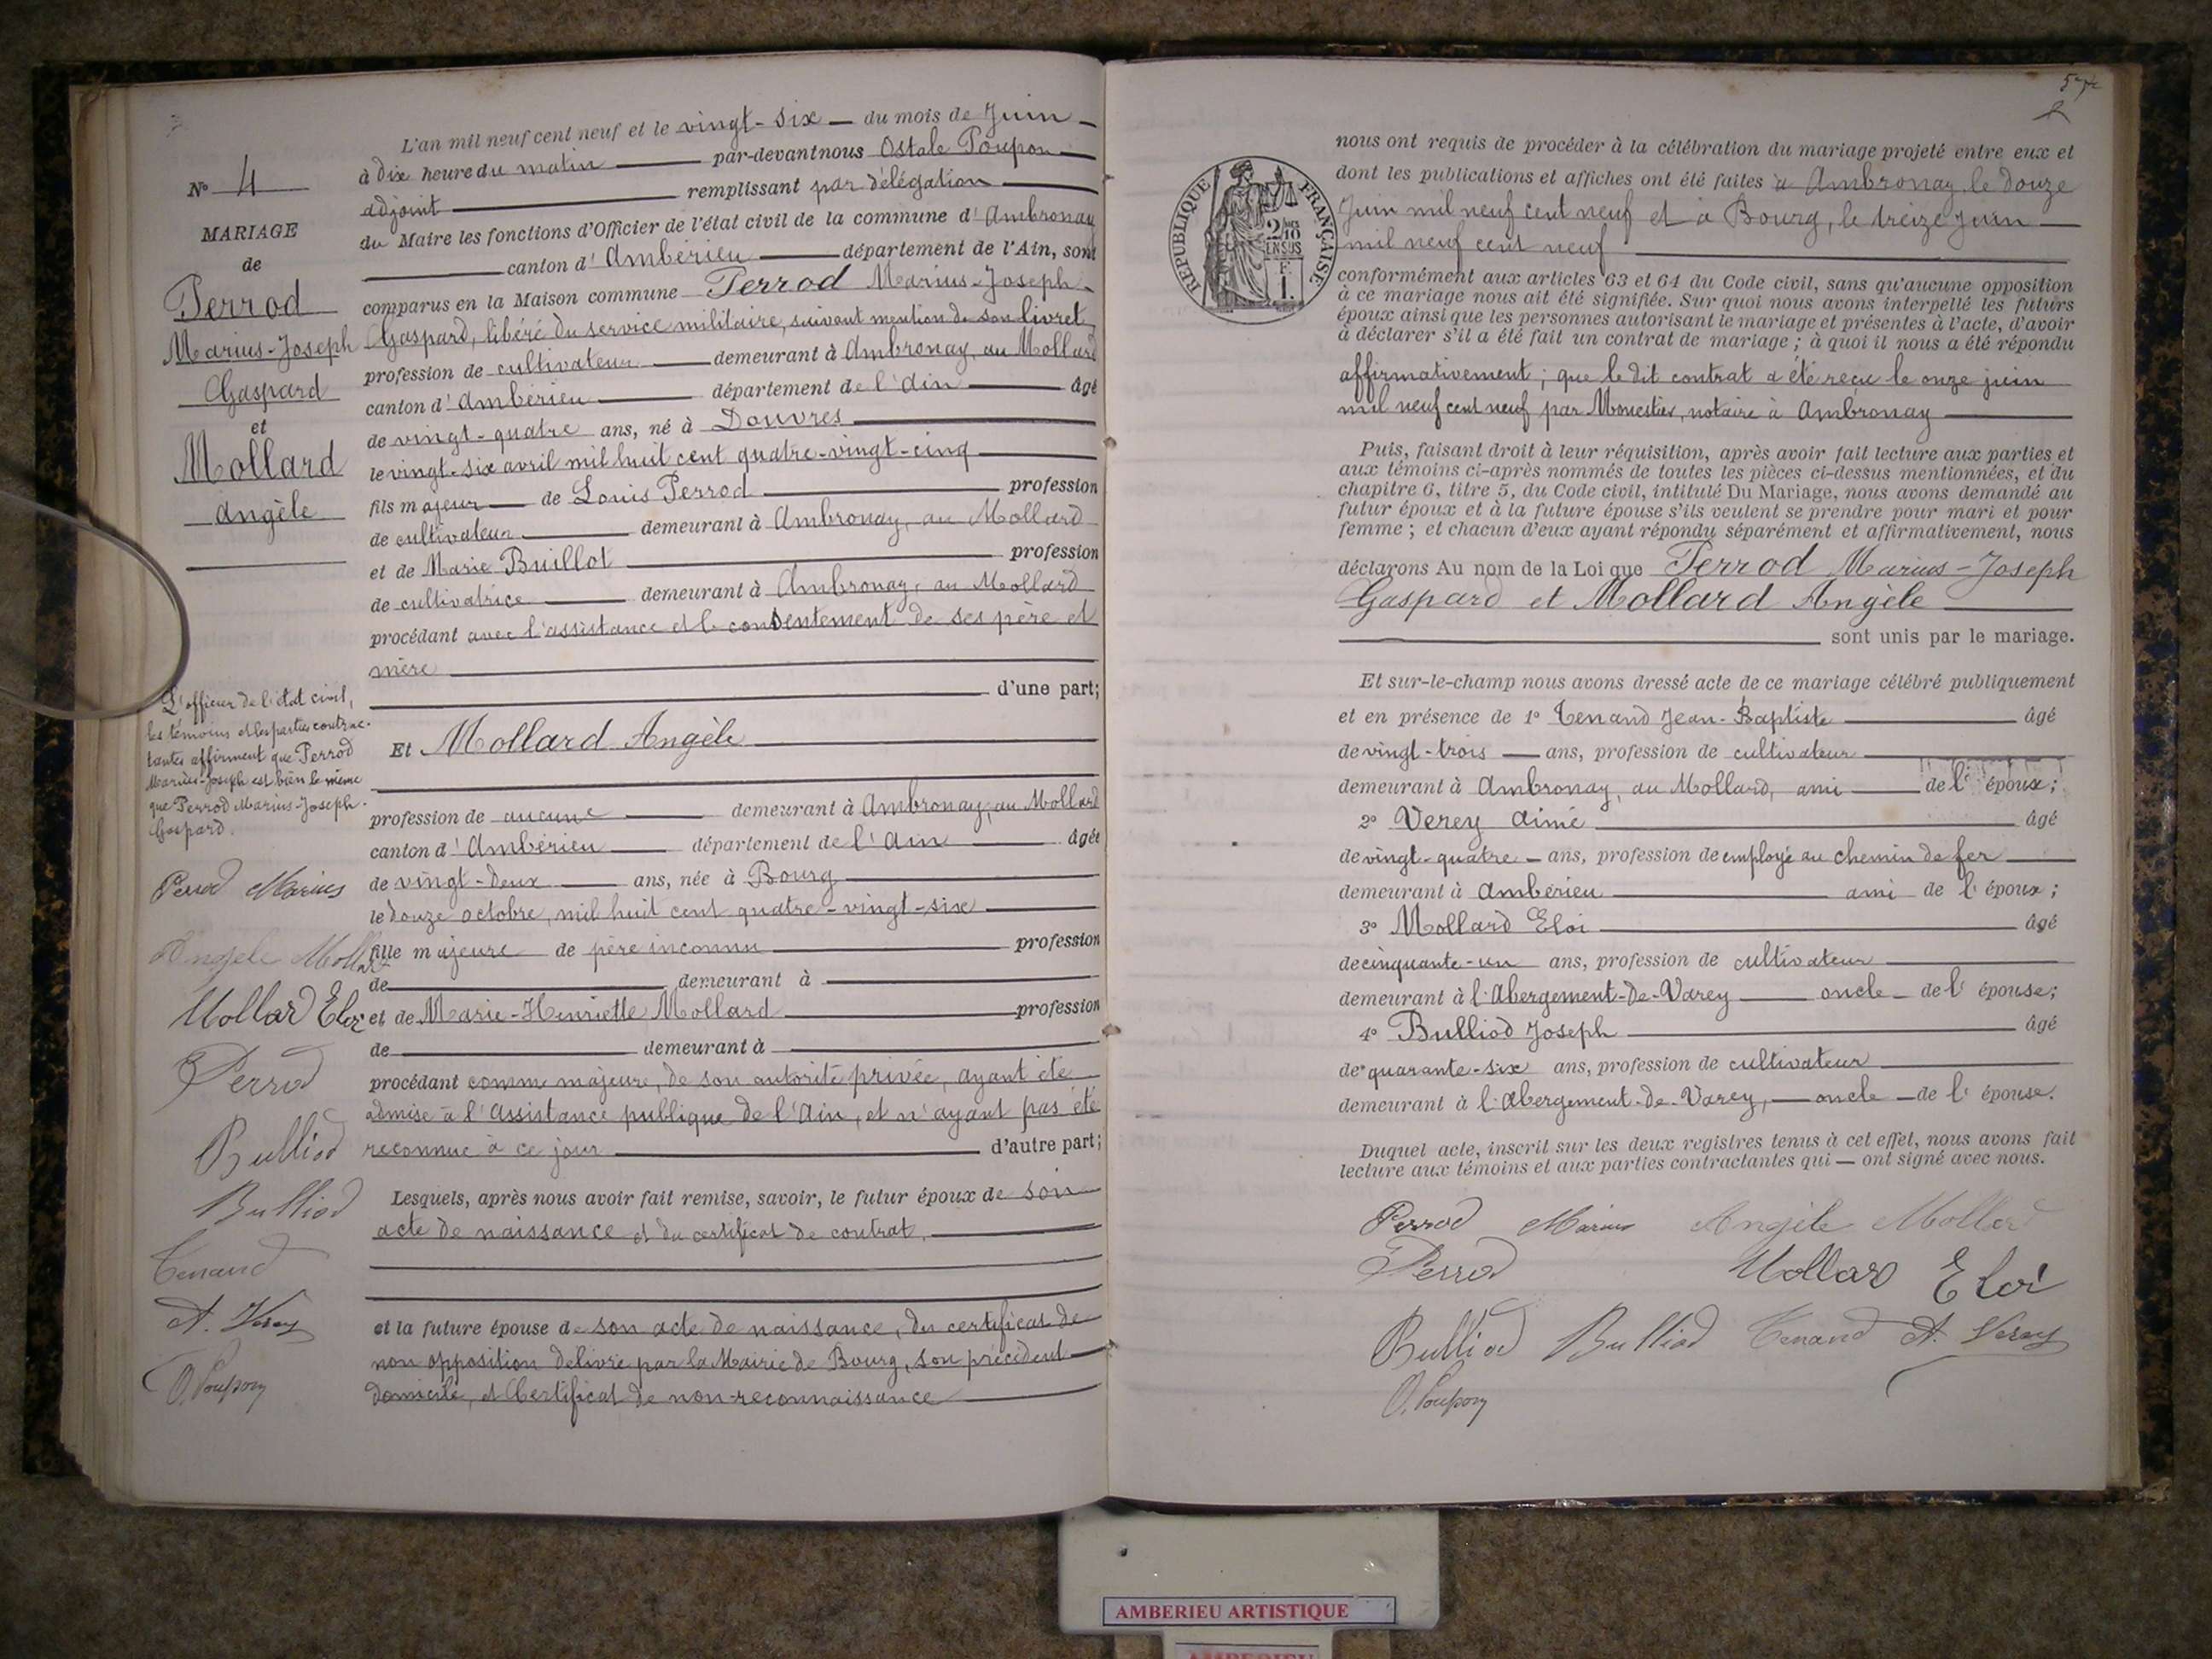 N° 4
MARIAGE
de
Perrod
Marius-Joseph
Gaspard
et
Mollard
Angèle
L'officier de l'état civil,
les témoins et les parties contrac-
tantes affirment que Perrod
Marius-Joseph est bien le même
que Perrod Marius-Joseph-
Gaspard.
Perrod Marius
Angèle Mollard
Mollard Eloi
Perrod
Bulliod
Bulliod
Tenand
A. Verey
O. Poupon
L'an mil neuf cent neuf et le vingt-six du mois de Juin
à dix heure du matin par-devant nous Ostale Poupon
adjoint remplissant par délégation
du Maire les fonctions d'Officier de l'état civil de la commune d'Ambronay
canton d'Ambérieu département de l'Ain, sont
comparus en la Maison commune Perrod Marius-Joseph-
Gaspard, libéré du service militaire, suivant mention de son livret
profession de cultivateur demeurant à Ambronay, au Mollard
canton d'Ambérieu département de l'Ain âgé
de vingt-quatre ans, né à Douvres
le vingt-six avril mil huit cent quatre-vingt-cinq
fils majeur de Louis Perrod profession
de cultivateur demeurant à Ambronay, au Mollard
et de Marie Buillot profession
de cultivatrice demeurant à Ambronay, au Mollard
procédant avec l'assistance et le consentement de ses père et
mère
d'une part;
Et Mollard Angèle
profession de aucune demeurant à Ambronay, au Mollard
canton d'Ambérieu département de l'Ain âgée
de vingt-deux ans, née à Bourg
le douze octobre, mil huit cent quatre-vingt-six
fille majeure de père inconnu profession
de demeurant à
et de Marie-Henriette Mollard profession
de demeurant à
procédant comme majeure, de son autorité privée, ayant été
admise à l'Assistance publique de l'Ain, et n'ayant pas été
reconnue à ce jour d'autre part;
Lesquels, après nous avoir fait remise, savoir, le futur époux de son
acte de naissance et du certificat de contrat.
et la future épouse de son acte de naissance, du certificat de
non opposition délivré par la Mairie de Bourg, son précédent
domicile, et Certificat de non-reconnaissance
RÉPUBLIQUE FRANÇAISE
2/10
EN SUS
1.
nous ont requis de procéder à la célébration du mariage projeté entre eux et
dont les publications et affiches ont été faites à Ambronay, le douze
Juin mil neuf cent neuf et à Bourg, le treize Juin
mil neuf cent neuf
conformément aux articles 63 et 64 du Code civil, sans qu'aucune opposition
à ce mariage nous ait été signifiée. Sur quoi nous avons interpellé les futurs
époux ainsi que les personnes autorisant le mariage et présentes à l'acte, d'avoir
à déclarer s'il a été fait un contrat de mariage ; à quoi il nous a été répondu
affirmativement ; que le dit contrat a été reçu le onze juin
mil neuf cent neuf par Monestier, notaire à Ambronay
Puis, faisant droit à leur réquisition, après avoir fait lecture aux parties et
aux témoins ci-après nommés de toutes les pièces ci-dessus mentionnées, et du
chapitre 6, titre 5, du Code civil, intitulé Du Mariage, nous avons demandé au
futur époux et à la future épouse s'ils veulent se prendre pour mari et pour
femme ; et chacun d'eux ayant répondu séparément et affirmativement, nous
déclarons Au nom de la Loi que Perrod Marius-Joseph
Gaspard et Mollard Angèle
sont unis par le mariage.
Et sur-le-champ nous avons dressé acte de ce mariage célébré publiquement
et en présence de 1° Tenand Jean-Baptiste âgé
de vingt-trois ans, profession de cultivateur
demeurant à Ambronay, au Mollard, ami de l'époux;
2° Verey Aimé âgé
de vingt-quatre ans, profession de employé au chemin de fer
demeurant à Ambérieu ami de l'époux;
3° Mollard Eloi âgé
de cinquante-un ans, profession de cultivateur
demeurant à l'Abergement-de-Varey oncle de l'épouse;
4° Bulliod Joseph âgé
de quarante-six ans, profession de cultivateur
demeurant à l'Abergement-de-Varey, oncle de l'épouse.
Duquel acte, inscrit sur les deux registres tenus à cet effet, nous avons fait
lecture aux témoins et aux parties contractantes qui ont signé avec nous.
Perrod Marius Angèle Mollard
Perrod Mollard Eloi
Bulliod Bulliod Tenand A. Verey
O. Poupon
AMBERIEU ARTISTIQUE
AMBERIEU